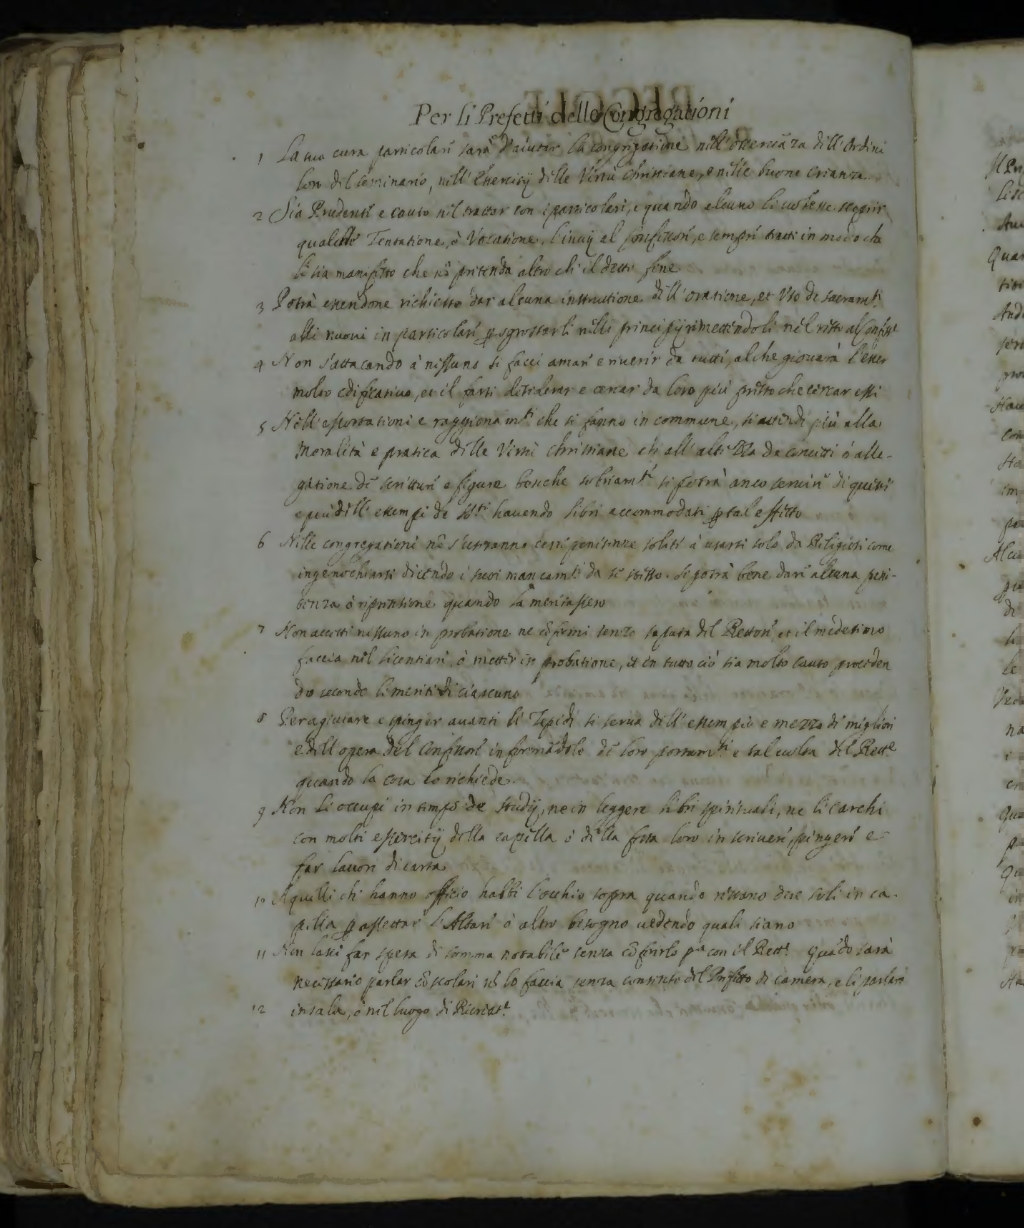 Per li Prefetti delle Congregationi
1 La sua cura particolare sarà d'aiutar la congregatione nell'osservāza dell'Ordini
loro del seminario, nell'Essercitij delle Virtù Christiane, e nelle buone Creanze.
2 Sia Prudente e cauto nel trattar con i particolari, e quando alcuno li volesse scoprir
qualche Tentatione, ò Vocatione, l'invij al confessore, e sempre tratti in modo che
li sia manifesto che nō pretenda altro che il detto fine
3 Potrà essendone richiesto dar alcuna instruttione dell'oratione, et Uso de sacramti
alli nuovi in particolare p sgrossarli nelli principij rimettendoli nel resto al
4 Non s'attaccando à nissuno si facci amare e riverir da tutti, al che giovarà l'esser
molto edificativo, et il farsi desiderar e cercar da loro più presto che cercar essi
5 Nell'essortationi e raggionamti che si fanno in commune, s'attende più alla
moralità e pratica delle Virtù christiane che all' da concetti ò alle-
gatione de scritture e figure benche sobriamte si potrà anco servire di questi
e più dell'essempi de Sti havendo libri accommodati p tal effetto
6 Nelle congregationi nō s'usaranno certe penitenze solite à usarsi solo da Religiosi come
ingenochiarsi dicendo i suoi mancamti da se stesso. Si potrà bene dare alcuna peni-
tenza ò riprensione quando la meritassero
7 Non accetti nissuno in probatione ne cōfermi senza saputa del Rettore, et il medesimo
faccia nel licentiare, ò metter in probatione, et in tutto ciò sia molto cauto proceden
do secondo li meriti di ciascuno
8 Per agiutare e spinger avanti li Tepidi si serva dell'essempio e mezzo de migliori
e dell'opera del Confessore informādolo de loro portamti e tal volta del Rettre
quando la cosa lo richiede
9 Non li occupi in tempo de studij, ne in leggere libri spirituali, ne li carchi
con molti essercitij della capella ò della festa loro in scrivere spingere e
far lavori di carta
10 A quelli ch'hanno officio habbi l'occhio sopra quando restano due soli in ca-
pella p assettar l'Altare ò altro bisogno vedendo quali siano
11 Non lassi far spesa di somma notabile senza cōferirlo pa con il Rettre Quādo sarà
necessario parlar cō scolari nō lo faccia senza consenso del Prefetto di camera, e li parlarà
12 in sala, ò nel luogo di Ricreatne